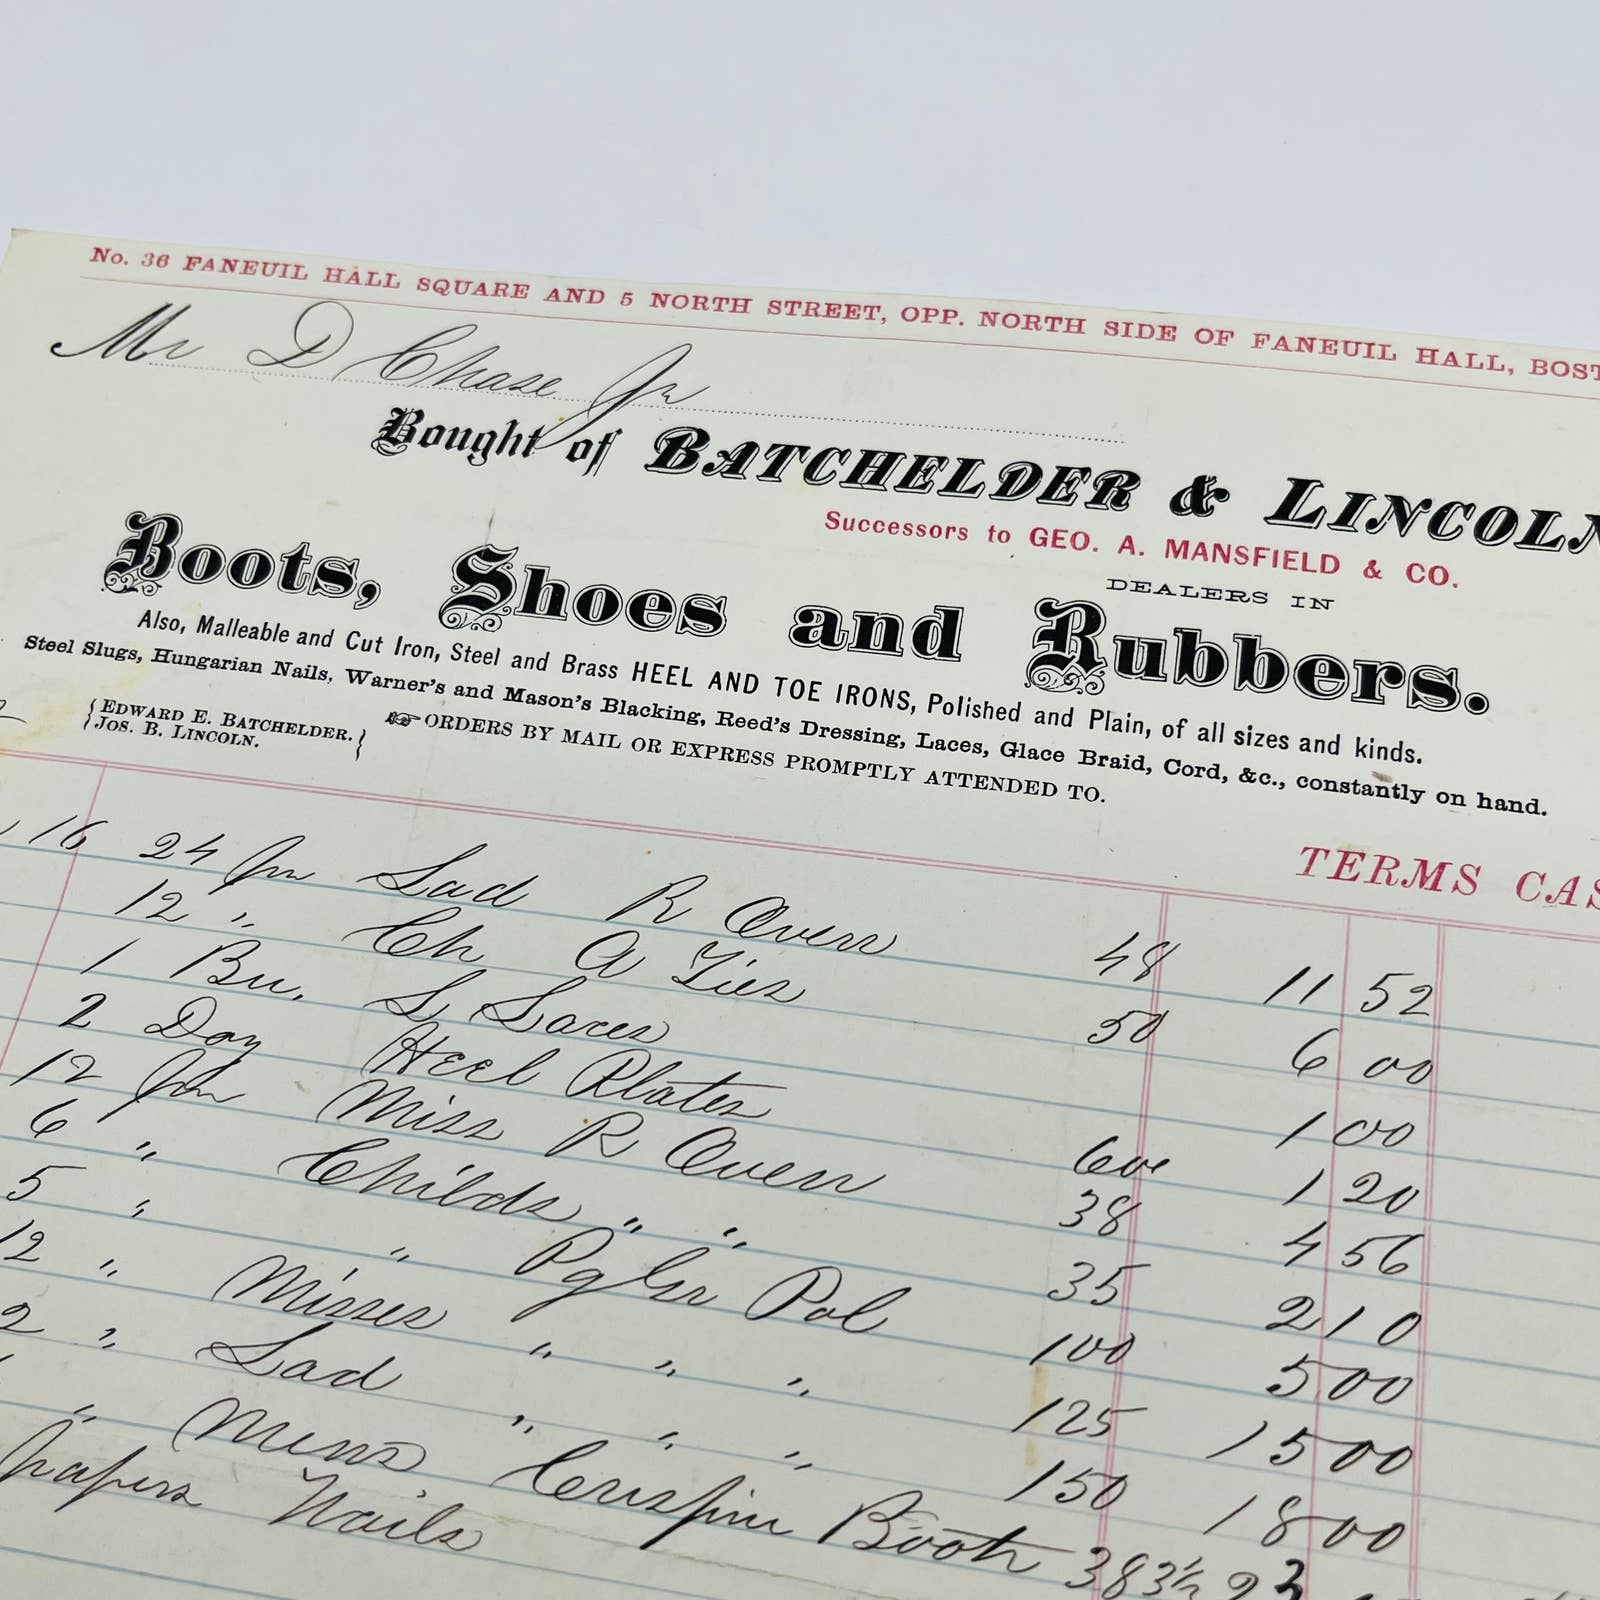 No. 36 FANEUIL HALL SQUARE AND 5 NORTH STREET, OPP. NORTH SIDE OF FANEUIL HALL, BOST
Mr D Chase Jr
Bought of BATCHELDER & LINCOLN
Successors to GEO. A. MANSFIELD & CO.
DEALERS IN
Boots, Shoes and Rubbers.
Also, Malleable and Cut Iron, Steel and Brass HEEL AND TOE IRONS, Polished and Plain, of all sizes and kinds.
Steel Slugs, Hungarian Nails, Warner's and Mason's Blacking, Reed's Dressing, Laces, Glace Braid, Cord, &c., constantly on hand.
{EDWARD E. BATCHELDER.
JOS. B. LINCOLN.}
☞ORDERS BY MAIL OR EXPRESS PROMPTLY ATTENDED TO.
TERMS CAS
16 24 Lad R Over 48 11 52
12 " Ch A Ties 50 6 00
1 Bu. S Laces 1 00
2 Doz Heel Plates 60 1 20
12 Miss R Over 38 4 56
6 " Childs " " 35 2 10
5 " " Pol 100 5 00
12 " Misses " " " 125 15 00
2 " Lad " " " 150 18 00
" Mens Crispin Boots 383½
papers Nails